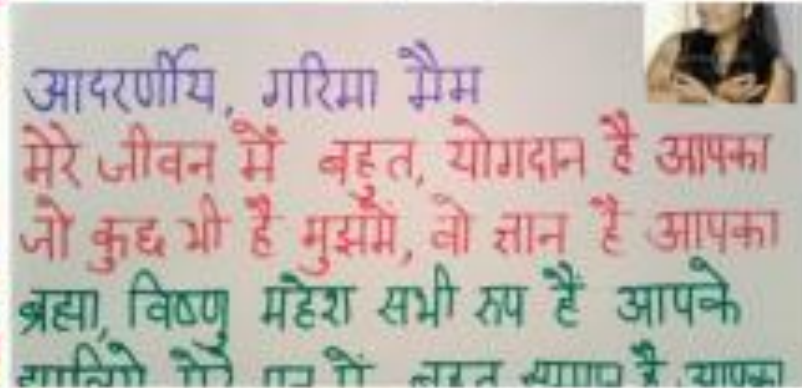 आदरर्णीय, गरिमा मैम
मेरे जीवन में बहुत, योगदान है आपका
जो कुछ भी है मुझमें, वो ज्ञान है आपका
ब्रह्मा, विष्णु महेश सभी रुप हैं आपके
मेरे मन में बहुत है आपका